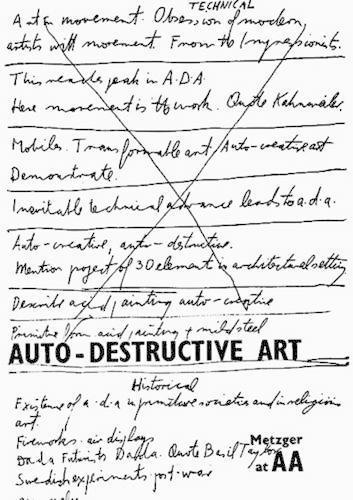 TECHNICAL
Art + movement. Obsession of modern
artists with movement. From the Impressionists.
This reaches peak in A.D.A
Here movement is the work. Quote Kahnweiler.
Mobiles. Transformable art, Auto-creative art
Demonstrate.
Inevitable technical advance leads to a.d.a.
Auto-creative, auto-destructive.
Mention project of 3D element in architectural setting
Describe acid painting auto-creative
Primitive form acid painting + mild steel
AUTO-DESTRUCTIVE ART
Historical
Existence of a.d.a in primitive societies and in religious
art.
Fireworks. air displays
Dada Futurists Dada. Quote Basil Taylor
Swedish experiments post-war
Metzger
at AA